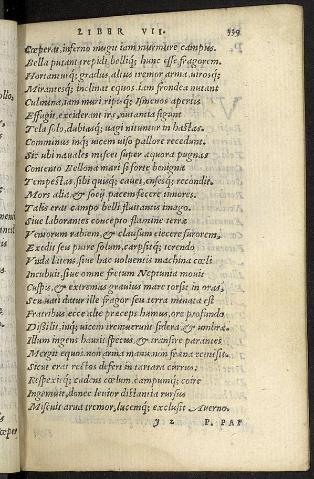 LIBER VII. 339
Cœperat, inferno mugit iam murmure campus.
Bella putant trepidi, belliq; hunc esse fragorem.
Hortanturq; gradus, alius tremor arma, uirosq;
Mirantesq; inclinat equos. iam frondea nutant
Culmina, iam muri, ripisq; Ismenos apertis
Effugit, exciderant irę, nutantia figunt
Tela solo, dubiasq; uagi nituntur in hastas.
Comminus inq; uicem uiso pallore recedunt.
Sic ubi nauales miscet super æquora pugnas
Contento Bellona mari si forte benigna
Tempestas, sibi quisq; cauet, ensesq; recondit.
Mors alia, & socij pacem fecere timores.
Talis erat campo belli fluitantis imago.
Siue laborantes concepto flamine terræ
Ventorum rabiem, & clausum eiecere furorem.
Exedit seu putre solum, carpsitq; terendo
Vnda latens, siue hac uoluentis machina cœli
Incubuit, siue omne fretum Neptunia mouit
Cuspis, & extremas grauius mare torsit in oras.
Seu uati datur ille fragor seu terra minata est
Fratribus ecce alte præceps humus, ore profundo
Dissilit, inq; uicem tremuerunt sidera & umbræ.
Illum ingens haurit specus, & transire parantes
Mergit equos. non arma manu. non frœna remisit.
Sicut erat rectos defert in tartara currus.
Respexitq; cadens cœlum, campumq; coire
Ingemuit, donec leuior distantia rursus
Miscuit arua tremor, lucemq; exclusit Auerno.
y 2 P. PAP